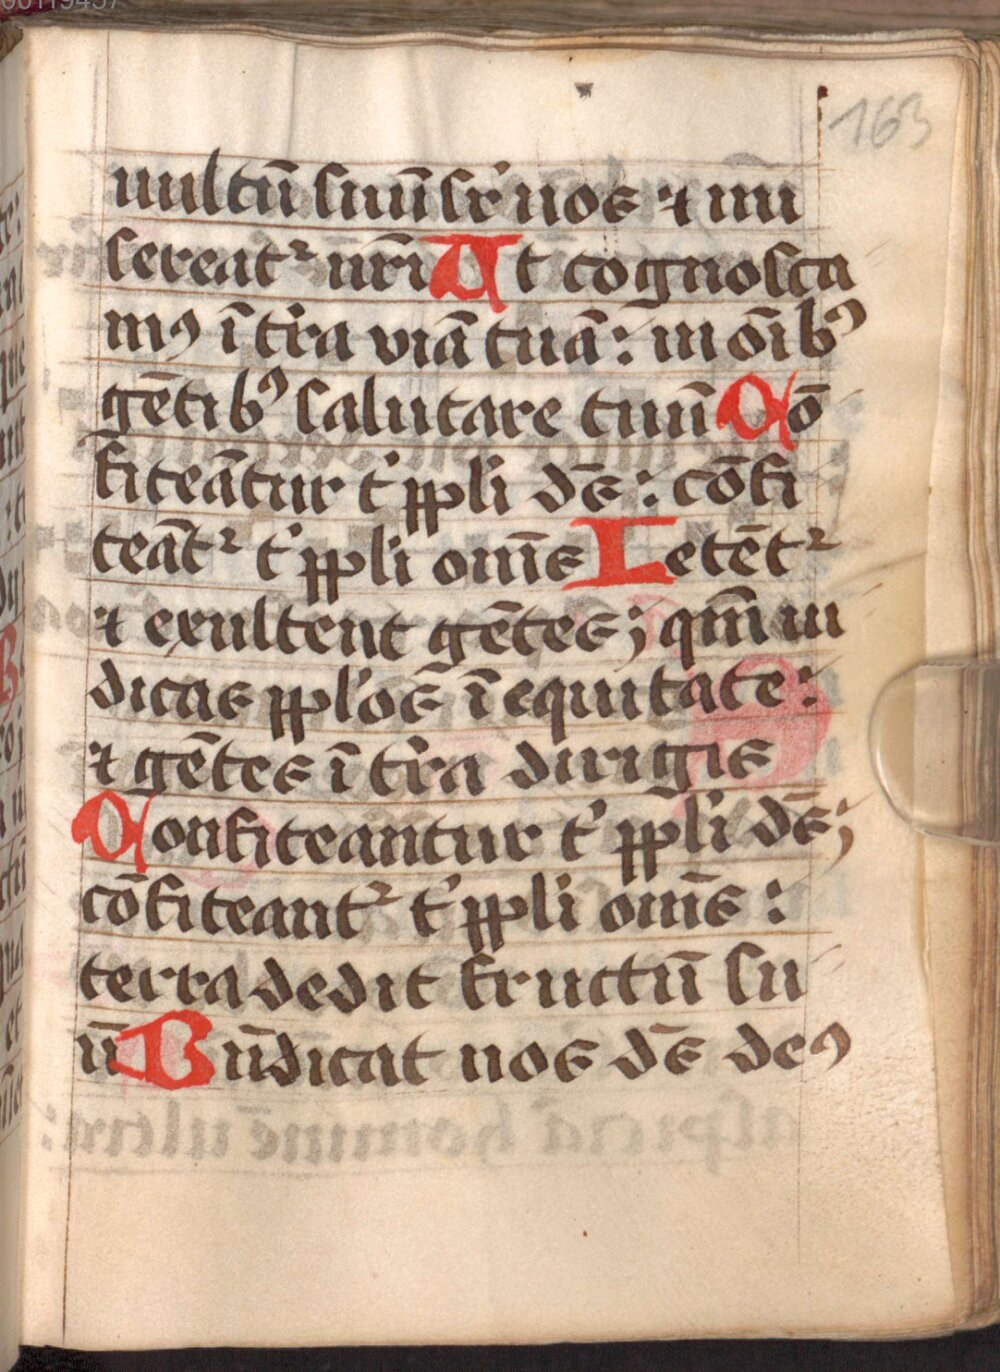 163
uultū suū sr̄ nos ⁊ mi
sereatᷣ nr̄i Ut cognosca
mꝰ ī tr̄a viā tuā: in oībꝰ
gētibꝰ salutare tuū Cō
fiteātur t' pp̄li dē: cōfi
teātᷣ t' pp̄li om̄s Letētᷣ
⁊ exultent gētes; qm̄ iu
dicas pp̄los ī equitate:
⁊ gētes ī tr̄a dirigis
Confiteantur t' pp̄li dē;
cōfiteantᷣ t' pp̄li om̄s:
terra dedit fructū su
ū Bn̄dicat nos dē deꝰ